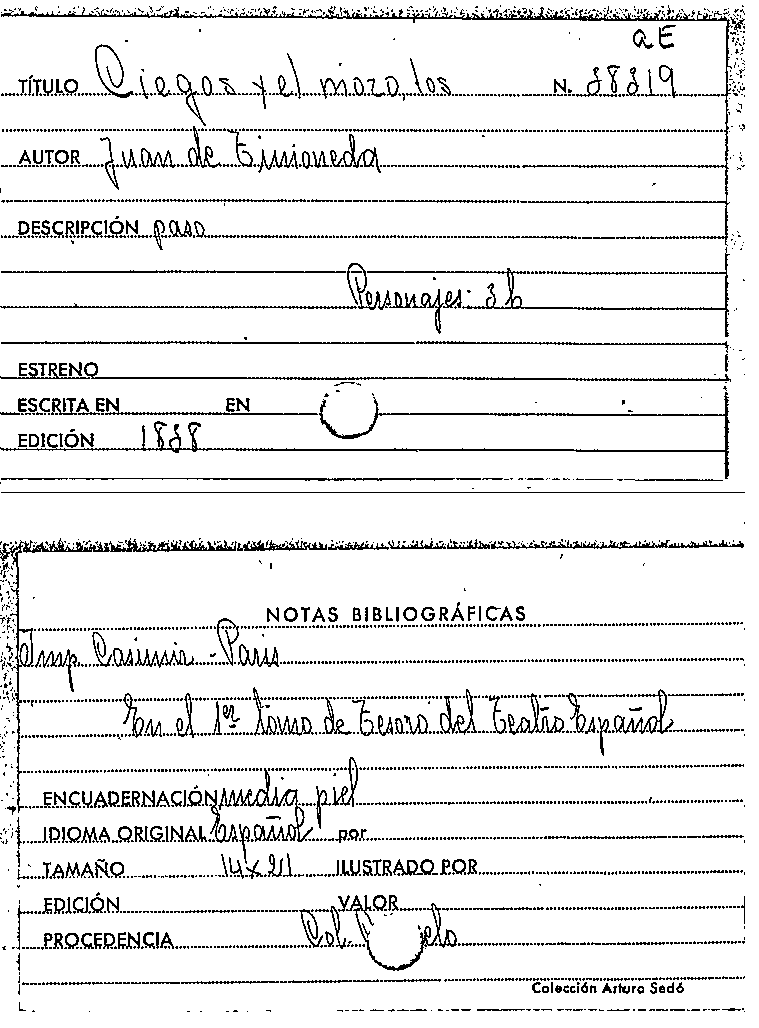 aE
TÍTULO Ciegos y el mozo, los N. 38319
AUTOR Juan de Timoneda
DESCRIPCIÓN paso
Personajes: 3 h
ESTRENO
ESCRITA EN EN
EDICIÓN 1838
NOTAS BIBLIOGRÁFICAS
Imp Casimir - Paris
En el 1er tomo de Tesoro del Teatro Español
ENCUADERNACIÓN media piel
IDIOMA ORIGINAL Español por
TAMAÑO 14 x 21 ILUSTRADO POR
EDICIÓN VALOR
PROCEDENCIA Col.
Colección Arturo Sedó